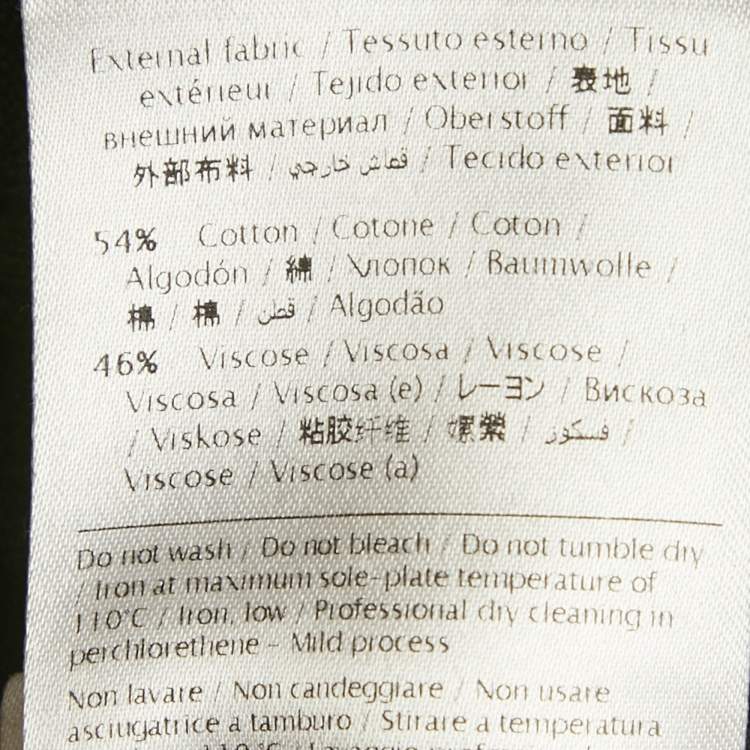 External fabric / Tessuto esterno / Tissu
extérieur / Tejido exterior / 表地 /
внешний материал / Oberstoff / 面料 /
外部布料 / قماش خارجي / Tecido exterior
54% Cotton / Cotone / Coton /
Algodón / 綿 / Хлопок / Baumwolle /
棉 / 棉 / قطن / Algodão
46% Viscose / Viscosa / Viscose /
Viscosa / Viscosa (e) / レーヨン / Вискоза
/ Viskose / 粘胶纤维 / 嫘縈 / فسكوز /
Viscose / Viscose (a)
Do not wash / Do not bleach / Do not tumble dry
/ Iron at maximum sole-plate temperature of
110°C / Iron, low / Professional dry cleaning in
perchlorethene - Mild process
Non lavare / Non candeggiare / Non usare
asciugatrice a tamburo / Stirare a temperatura